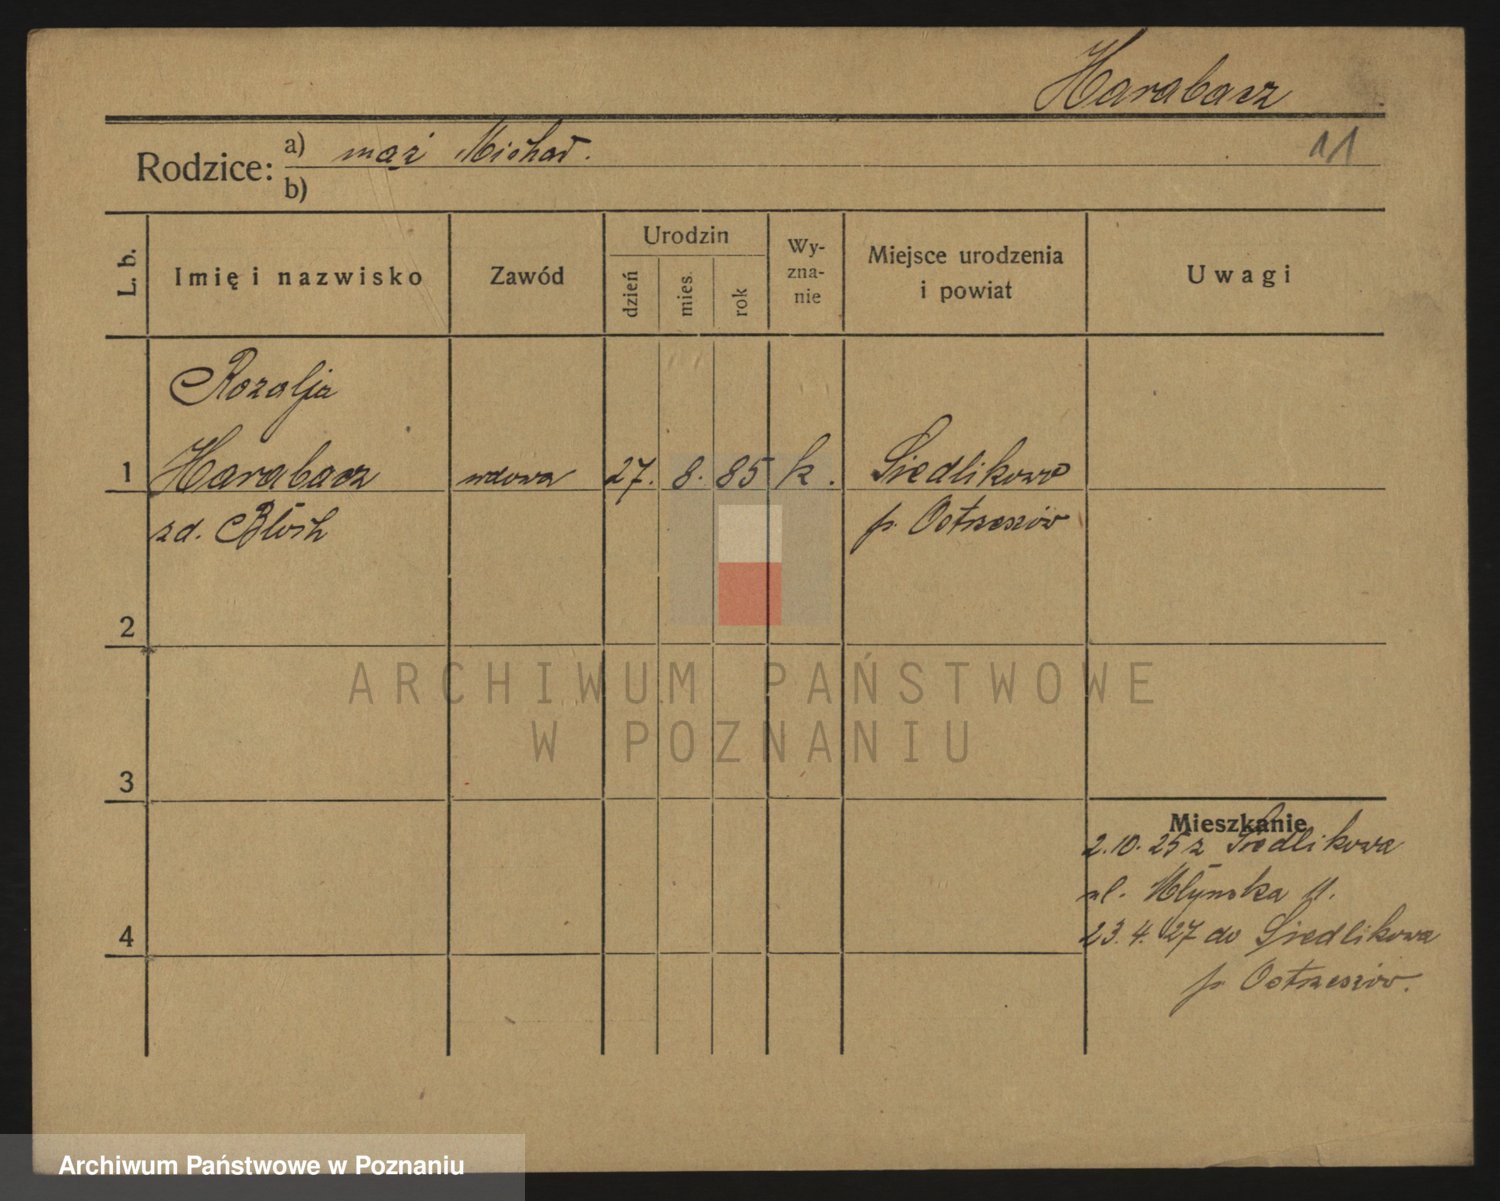 Harabacz
11
Rodzice: a) mąż Michał.
b)
L. b.
Imię i nazwisko
Zawód
Urodzin
dzień
mies.
rok
Wy-
zna-
nie
Miejsce urodzenia
i powiat
Uwagi
Rozalja
1 Harabacz wdowa 27. 8. 85 k. Siedlikowo
zd. Błoch p. Ostrzeszów
2
ARCHIWUM PAŃSTWOWE
W POZNANIU
3
Mieszkanie
2.10.25 z Siedlikowa
ul. Młyńska 11.
4 23.4.27 do Siedlikowa
p. Ostrzeszów.
Archiwum Państwowe w Poznaniu